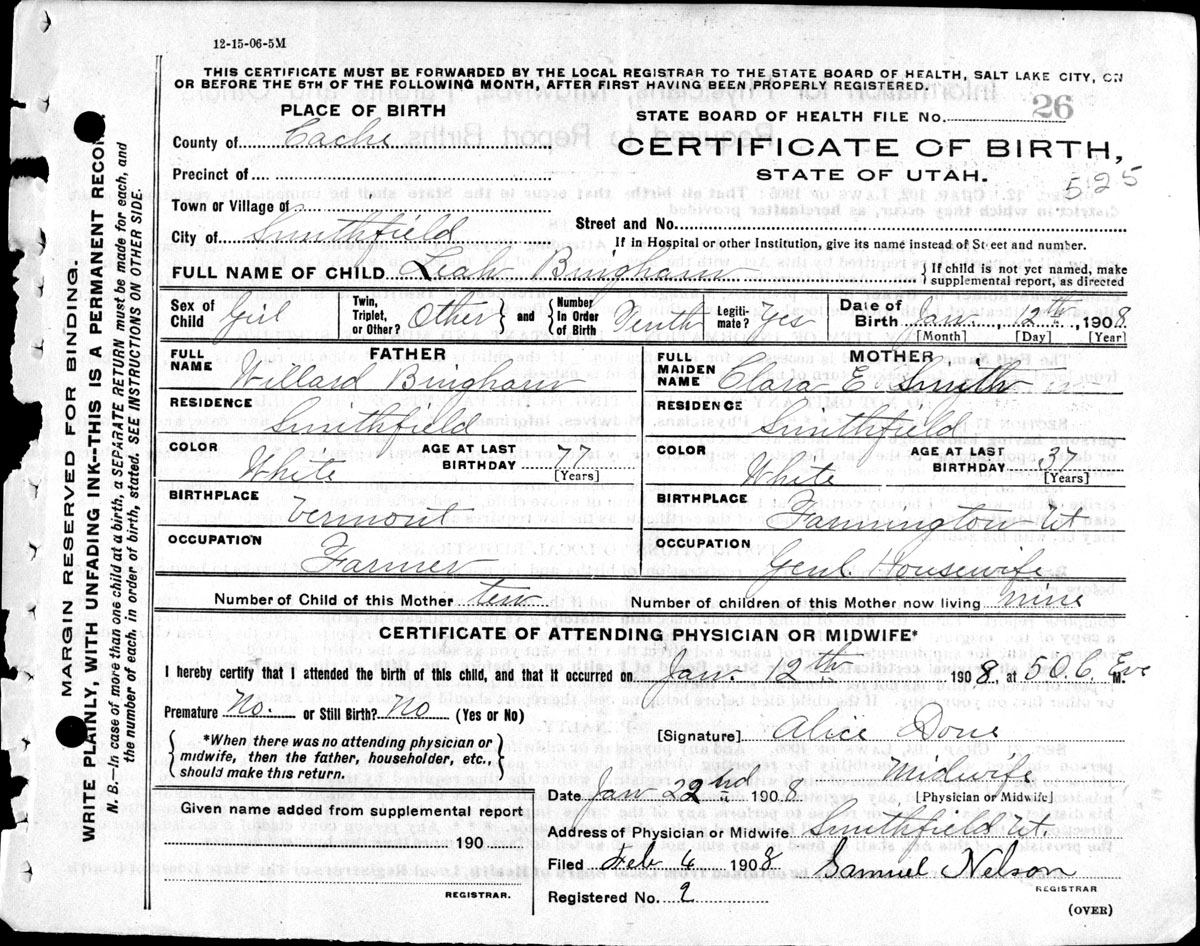 12-15-06-5M
THIS CERTIFICATE MUST BE FORWARDED BY THE LOCAL REGISTRAR TO THE STATE BOARD OF HEALTH, SALT LAKE CITY, ON
OR BEFORE THE 5TH OF THE FOLLOWING MONTH, AFTER FIRST HAVING BEEN PROPERLY REGISTERED.
PLACE OF BIRTH
STATE BOARD OF HEALTH FILE No. 26
County of Cache
CERTIFICATE OF BIRTH,
Precinct of
STATE OF UTAH.
5125
Town or Village of
Street and No.
City of Smithfield
If in Hospital or other Institution, give its name instead of Street and number.
FULL NAME OF CHILD Leah Bingham { If child is not yet named, make supplemental report, as directed
Sex of Child Girl
Twin, Triplet, or Other? Other } and { Number In Order of Birth Tenth
Legiti- mate? Yes
Date of Birth Jan. 12th, 1908
[Month] [Day] [Year]
FATHER
FULL NAME Willard Bingham
RESIDENCE Smithfield
COLOR White
AGE AT LAST BIRTHDAY 77
[Years]
BIRTHPLACE Vermont
OCCUPATION Farmer
MOTHER
FULL MAIDEN NAME Clara E. Smith
RESIDENCE Smithfield
COLOR White
AGE AT LAST BIRTHDAY 37
[Years]
BIRTHPLACE Farmington Ut
OCCUPATION Genl. Housewife
Number of Child of this Mother ten
Number of children of this Mother now living nine
CERTIFICATE OF ATTENDING PHYSICIAN OR MIDWIFE*
I hereby certify that I attended the birth of this child, and that it occurred on Jan. 12th 1908, at M. Eve
Premature No. or Still Birth? No (Yes or No)
{ *When there was no attending physician or midwife, then the father, householder, etc., should make this return. }
[Signature] Alice Done
Midwife
[Physician or Midwife]
Date Jan 22nd 1908
Given name added from supplemental report
190
REGISTRAR.
Address of Physician or Midwife Smithfield Ut.
Filed Feb 4 1908 Samuel Nelson
REGISTRAR
Registered No. 2
(OVER)
MARGIN RESERVED FOR BINDING.
WRITE PLAINLY, WITH UNFADING INK--THIS IS A PERMANENT RECORD.
N. B.—In case of more than one child at a birth, a SEPARATE RETURN must be made for each, and
the number of each, in order of birth, stated. SEE INSTRUCTIONS ON OTHER SIDE.